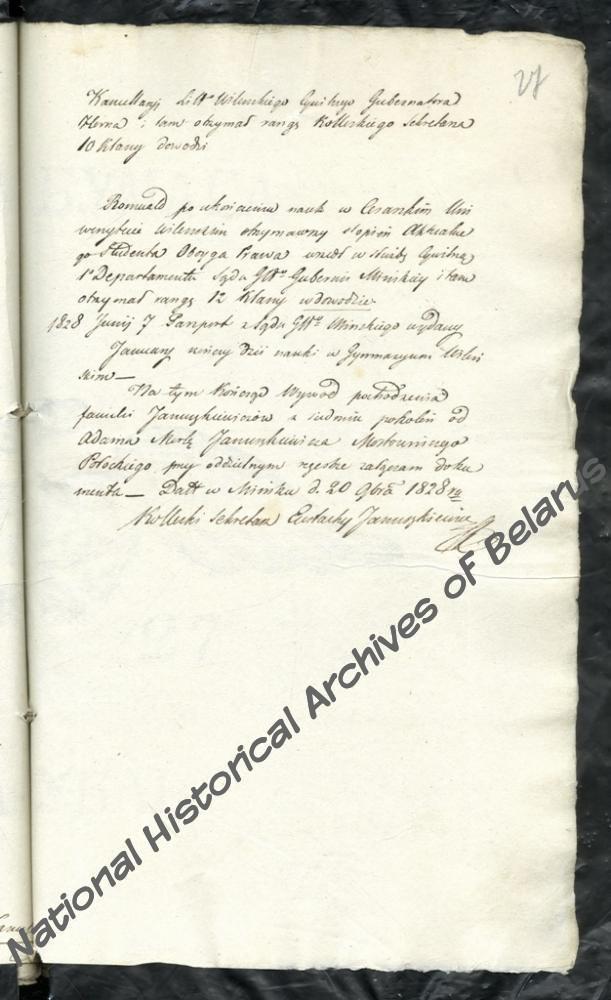 27
Kancellaryj Litto Wilenskiego Cywilnego Gubernatora
Horna i tam otrzymał rangę Kolleskiego Sekretarza
10 Klassy dowodzi
Romuald po ukończeniu nauk w Cesarskim Uni
wersytecie Wilenskim otrzymawszy stopień
go Studenta Oboyga Prawa wszedł w służbę Cywilną
1o Departamentu Sądu Głłgo Gubernii Minskiey i tam
otrzymał rangę 12 Klassy w dowodzie
1828 Junij 7 Paszport z Sądu Głłgo Minskiego wydany
January kończy dziś nauki w Gymnazyum Wileń
skim
Na tym kończę Wywod pochodzenia
familii Januszkiewiczow z siedmiu pokoleń od
Adama Januszkiewicza Mostowniczego
Połockiego, przy oddzielnym rejestrze załączam doku
menta — Datt w Mińsku d. 20 9bra 1828 ro
Kolleski Sekretarz Eustachy Januszkiewicz
National Historical Archives of Belarus